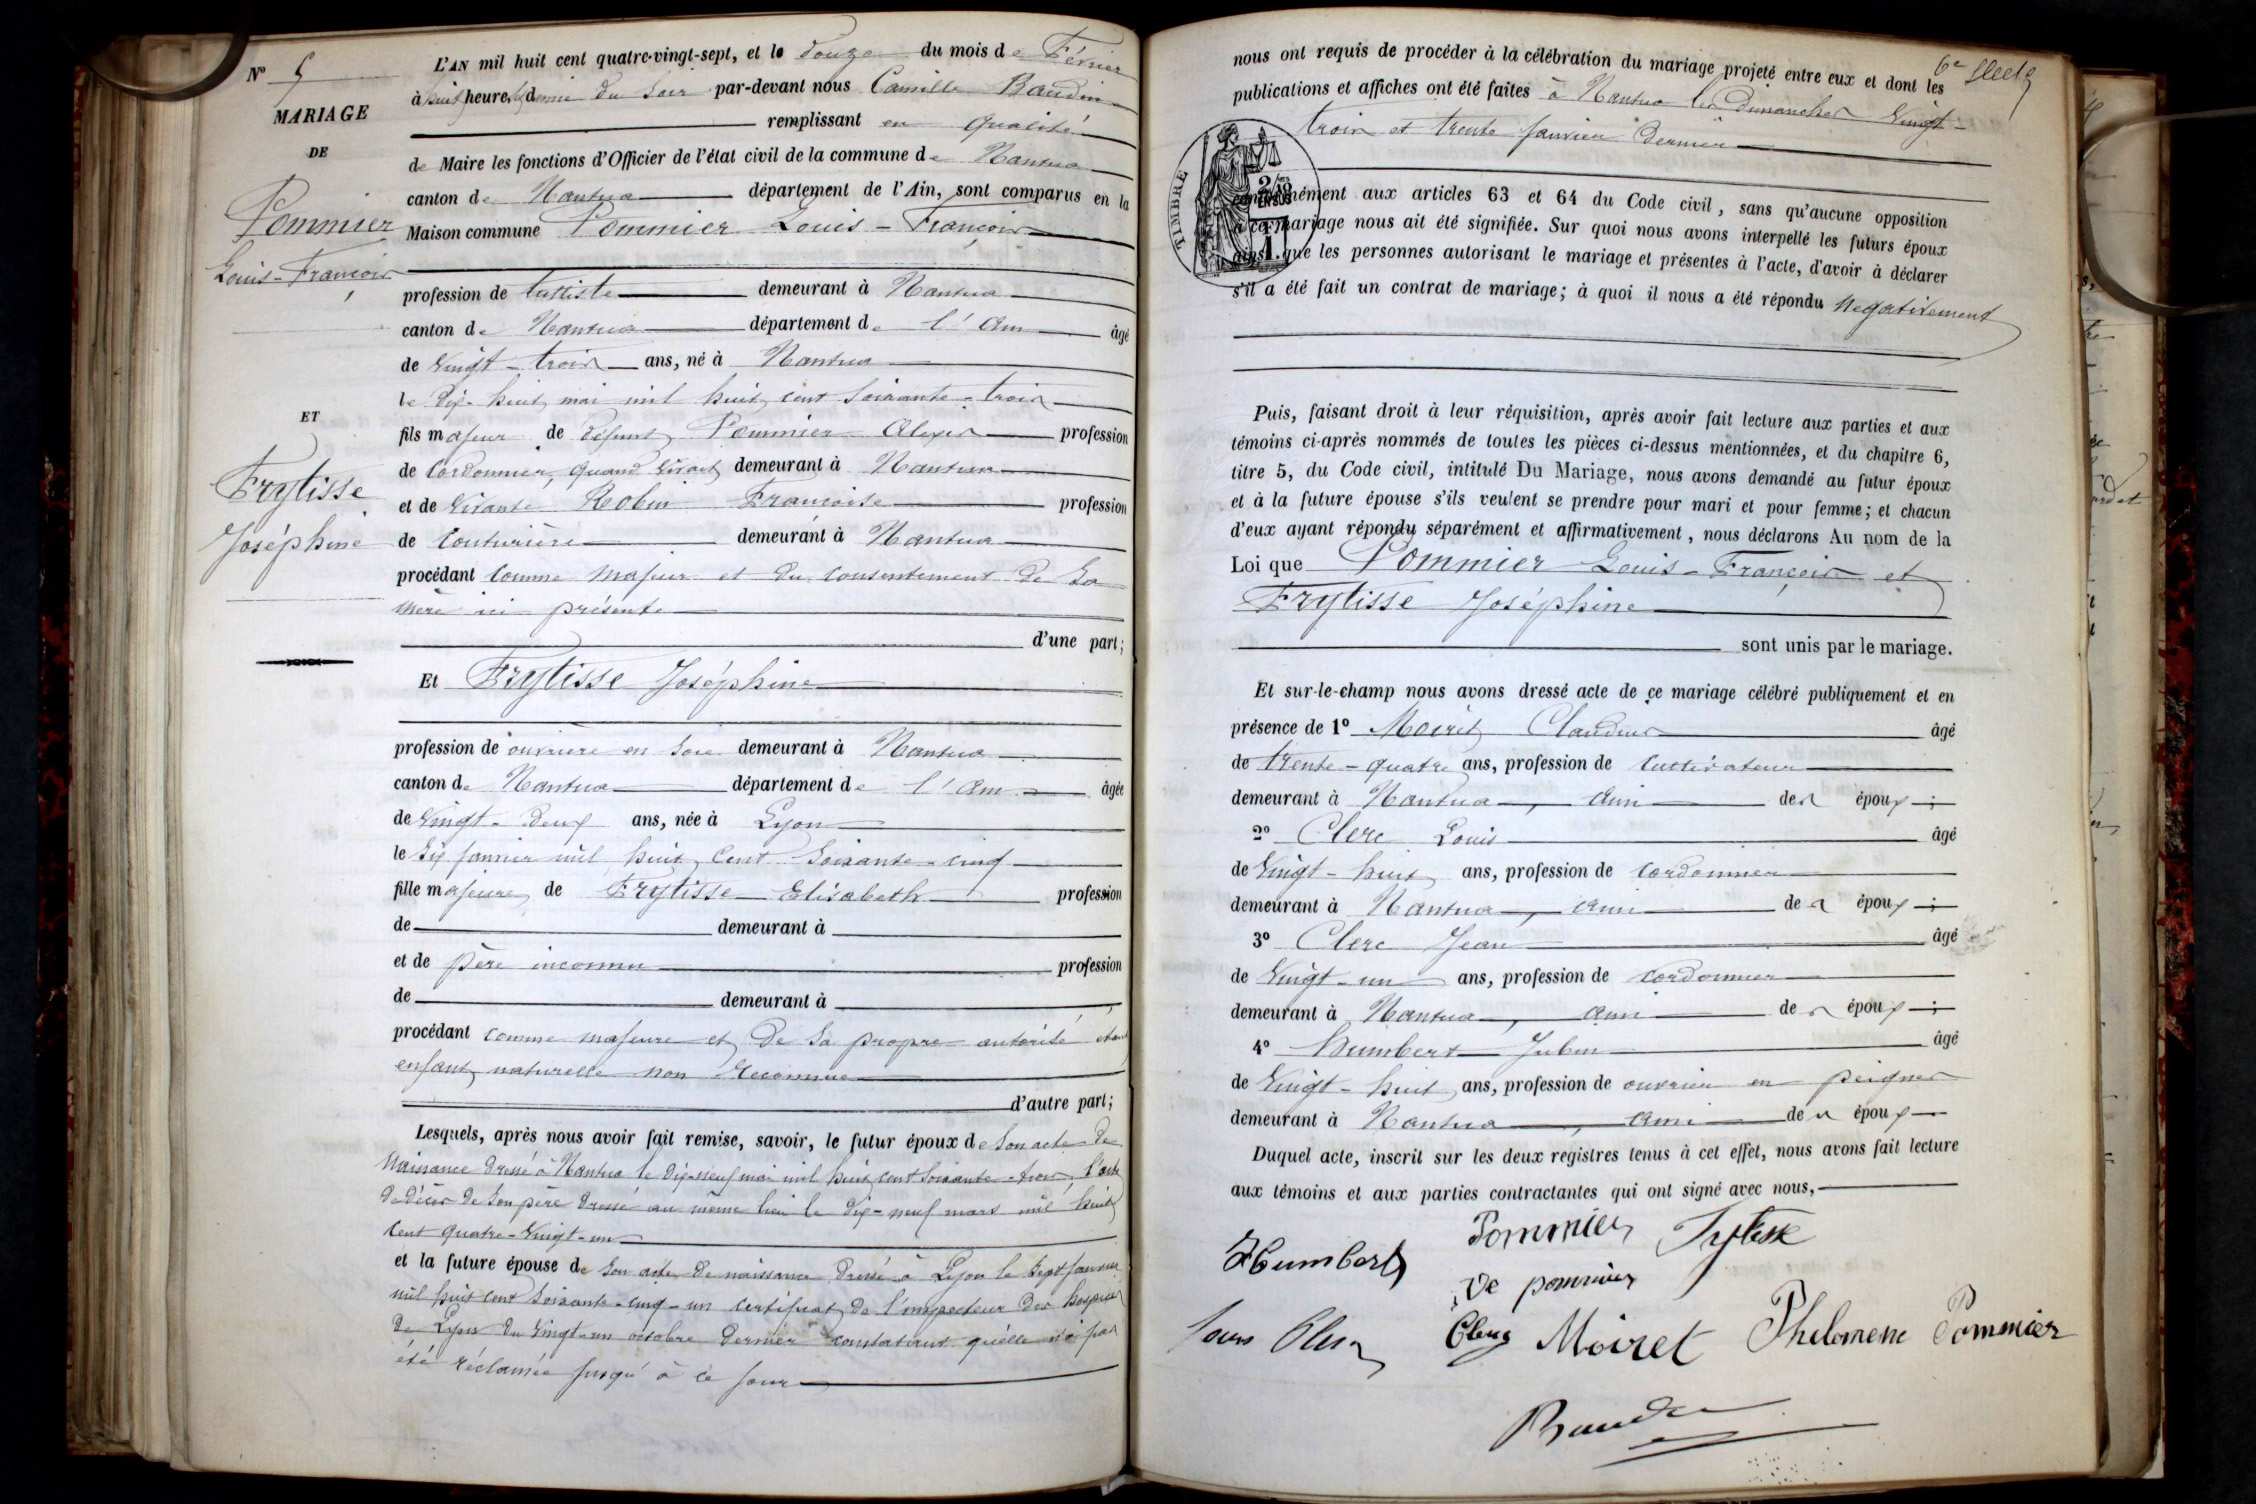 N° 5
MARIAGE
DE
Pommier
Louis-François
ET
Frylisse
Joséphine
L'AN mil huit cent quatre-vingt-sept, et le douze du mois de Février
à huit heures et demie du soir par-devant nous Camille Baudin
remplissant en qualité
de Maire les fonctions d'Officier de l'état civil de la commune de Nantua
canton de Nantua département de l'Ain, sont comparus en la
Maison commune Pommier Louis-François
profession de demeurant à Nantua
canton de Nantua département de l'Ain âgé
de vingt-trois ans, né à Nantua
le dix-huit mai mil huit cent soixante-trois
fils majeur de défunt Pommier Alexis profession
de cordonnier, quand vivait demeurant à Nantua
et de vivante Robin Françoise profession
de couturière demeurant à Nantua
procédant comme majeur et du consentement de sa
mère ici présente
d'une part;
Et Frylisse Joséphine
profession de ouvrière en soie demeurant à Nantua
canton de Nantua département de l'Ain âgée
de vingt-deux ans, née à Lyon
le six janvier mil huit cent soixante-cinq
fille majeure de Frylisse Elisabeth profession
de demeurant à
et de père inconnu profession
de demeurant à
procédant comme majeure et de sa propre autorité étant
enfant naturelle non reconnue
d'autre part;
Lesquels, après nous avoir fait remise, savoir, le futur époux de son acte de
naissance dressé à Nantua le dix-neuf mai mil huit cent soixante-trois, l'acte
de décès de son père dressé au même lieu le dix-neuf mars mil huit
cent quatre-vingt-un
et la future épouse de son acte de naissance dressé à Lyon le sept janvier
mil huit cent soixante-cinq - un certificat de l'inspecteur des hospices
de Lyon du vingt-un octobre dernier constatant qu'elle n'a pas
été réclamée jusqu'à ce jour
nous ont requis de procéder à la célébration du mariage projeté entre eux et dont les
publications et affiches ont été faites à Nantua les dimanches vingt-
trois et trente janvier dernier
TIMBRE
conformément aux articles 63 et 64 du Code civil, sans qu'aucune opposition
à ce mariage nous ait été signifiée. Sur quoi nous avons interpellé les futurs époux
ainsi que les personnes autorisant le mariage et présentes à l'acte, d'avoir à déclarer
s'il a été fait un contrat de mariage; à quoi il nous a été répondu négativement
Puis, faisant droit à leur réquisition, après avoir fait lecture aux parties et aux
témoins ci-après nommés de toutes les pièces ci-dessus mentionnées, et du chapitre 6,
titre 5, du Code civil, intitulé Du Mariage, nous avons demandé au futur époux
et à la future épouse s'ils veulent se prendre pour mari et pour femme; et chacun
d'eux ayant répondu séparément et affirmativement, nous déclarons Au nom de la
Loi que Pommier Louis-François et
Frylisse Joséphine
sont unis par le mariage.
Et sur-le-champ nous avons dressé acte de ce mariage célébré publiquement et en
présence de 1° Moiret Claudius âgé
de trente-quatre ans, profession de cultivateur
demeurant à Nantua, ami des époux;
2° Clerc Louis âgé
de vingt-huit ans, profession de cordonnier
demeurant à Nantua, ami des époux;
3° Clerc Jean âgé
de vingt-un ans, profession de cordonnier
demeurant à Nantua, ami des époux;
4° Humbert Jubin âgé
de vingt-huit ans, profession de ouvrier en peignes
demeurant à Nantua, ami des époux
Duquel acte, inscrit sur les deux registres tenus à cet effet, nous avons fait lecture
aux témoins et aux parties contractantes qui ont signé avec nous,
Humbert Pommier Frylisse
Ve pommier
Louis Clerc Clerc Moiret Philomene Pommier
Baudin